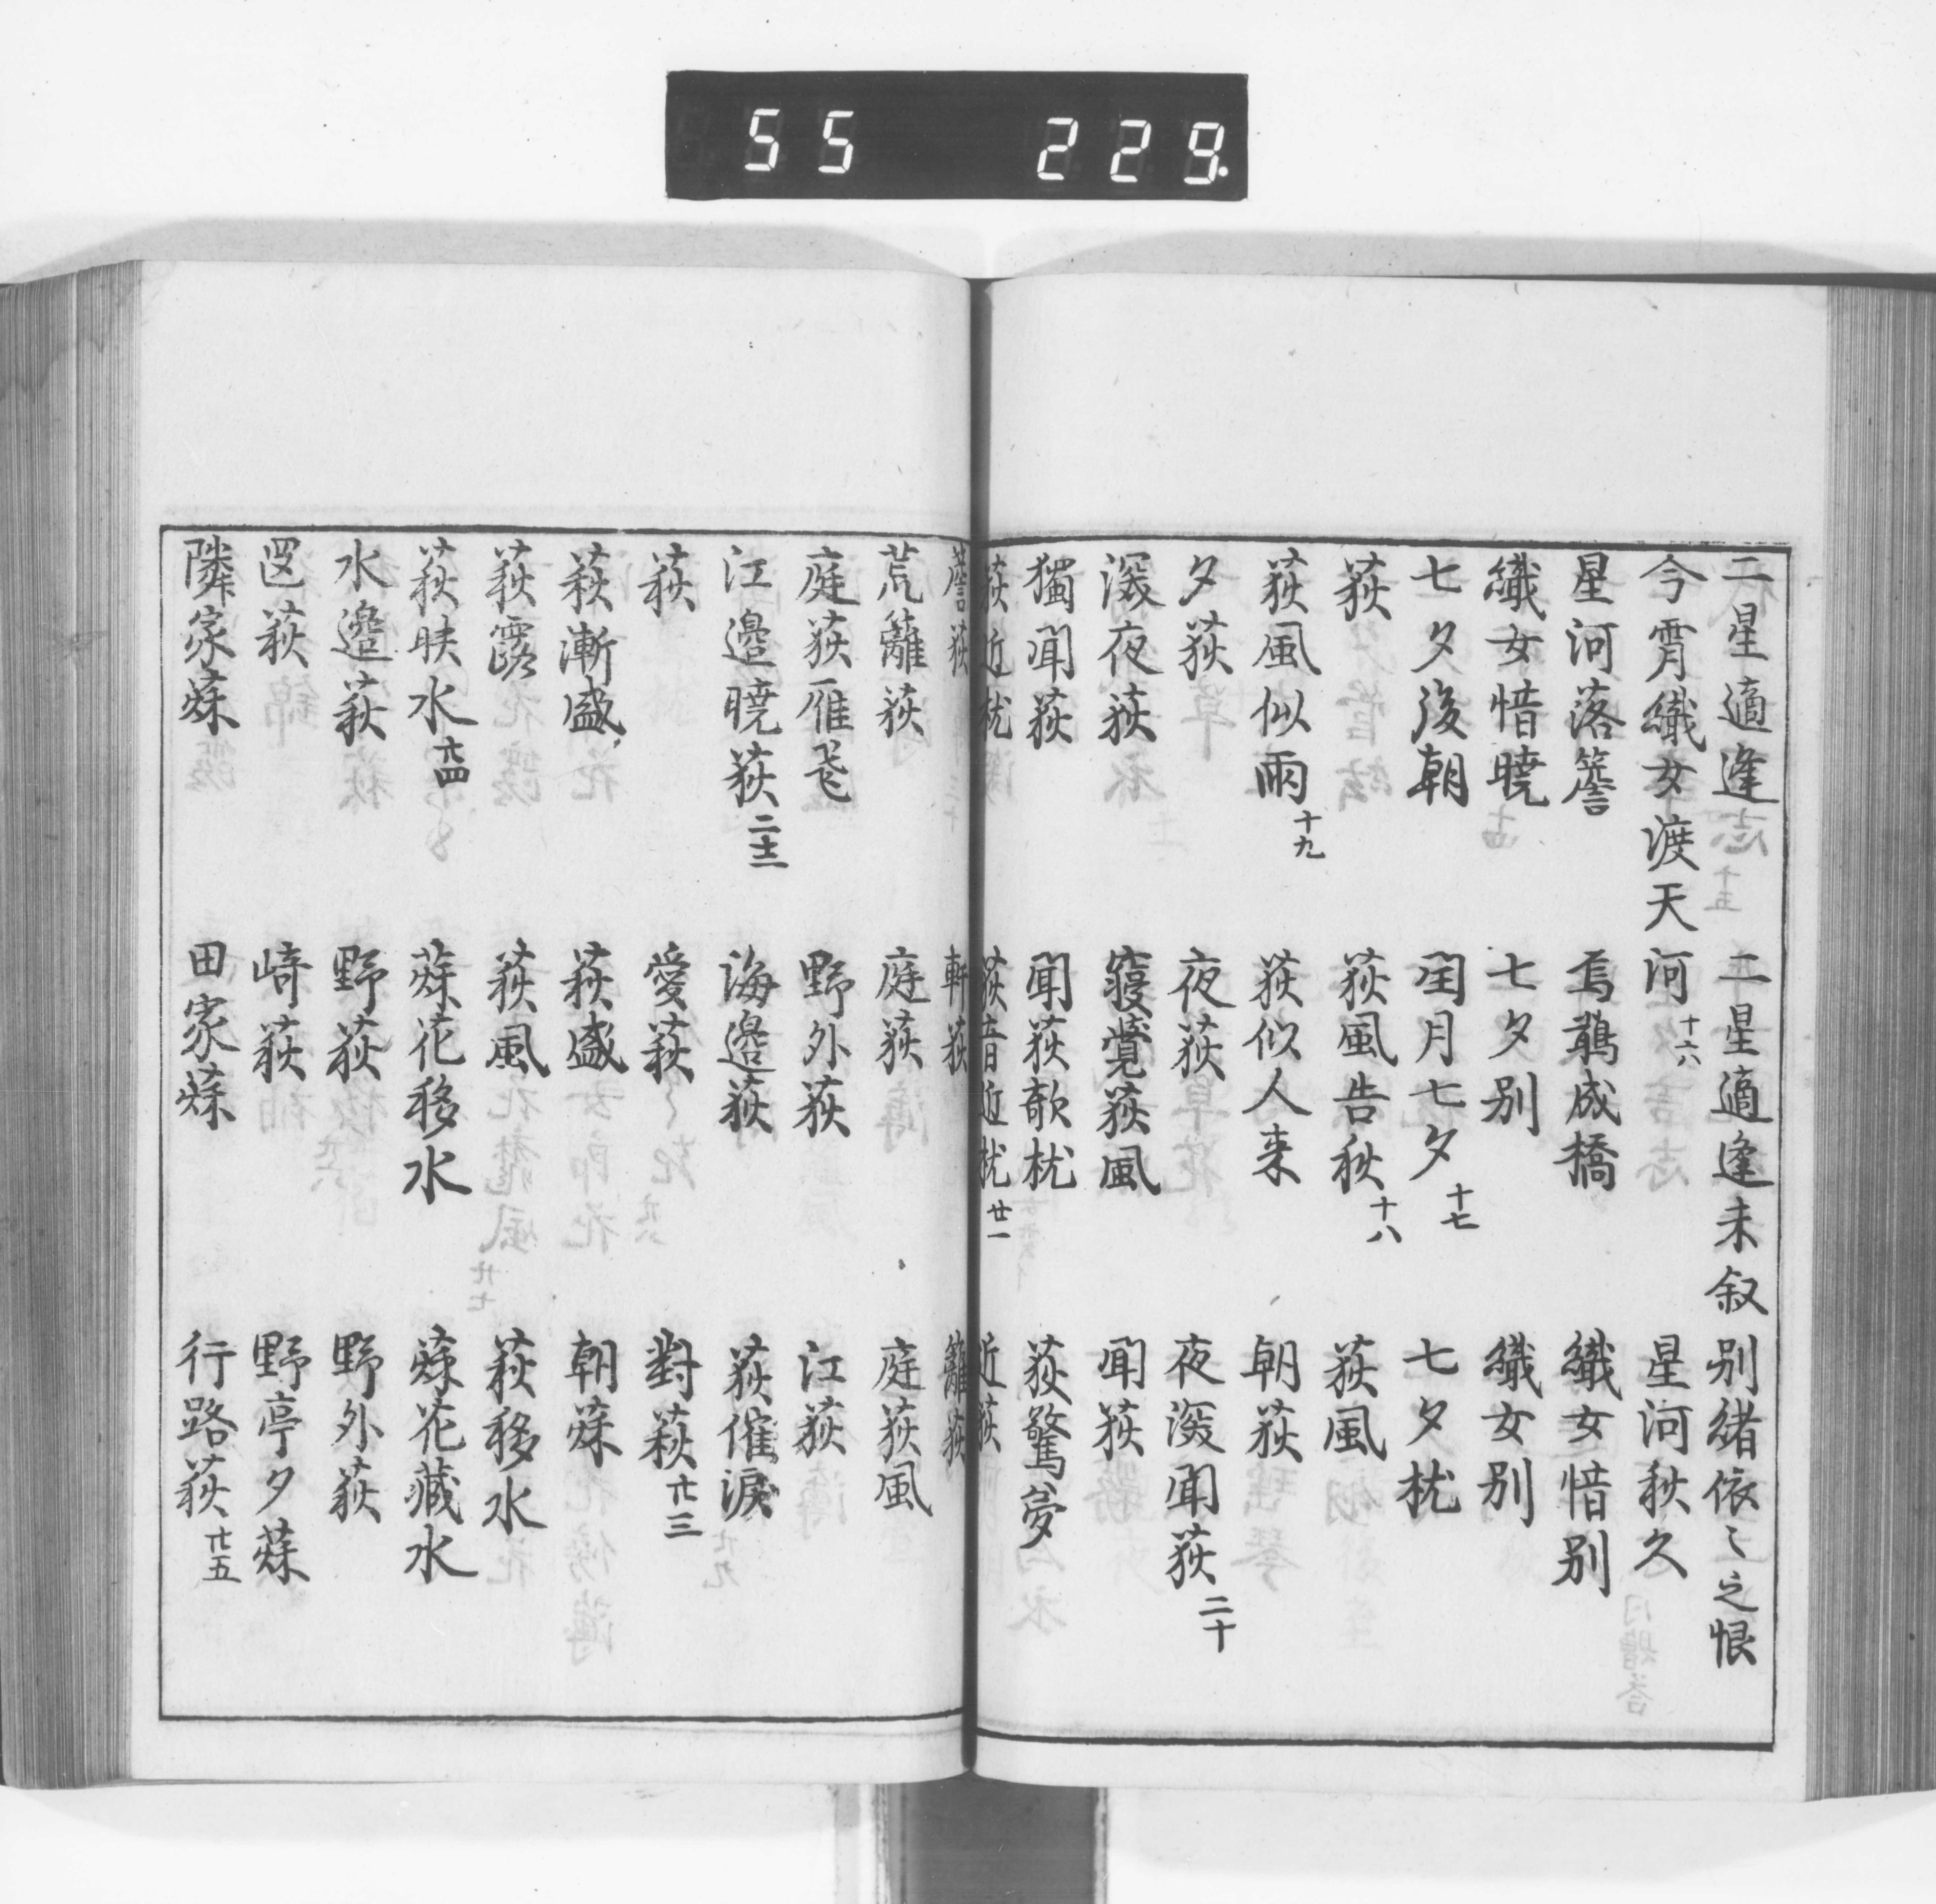 55 229.
二星適逢 二星適逢未叙別緒依〻之恨
今霄織女渡天河 十六 星河秋久
星河落簷 烏鵲成橋 織女惜別
織女惜曉 七夕別 織女別
七夕後朝 閏月七夕 十七 七夕枕
荻 荻風告秋 十八 荻風
荻風似雨 十九 荻似人来 朝荻
夕荻 夜荻 夜深聞荻 二十
深夜荻 寢覺荻風 聞荻
獨聞荻 聞荻欹枕 荻驚夢
荻近枕 荻音近枕 廿一 近荻
簷荻 軒荻 籬荻
荒籬荻 庭荻 庭荻風
庭荻雁飛 野外荻 江荻
江邊曉荻 二十二 海邊荻 荻催淚
萩 愛萩 對萩 廿三
萩漸盛 萩盛 朝蒁
萩露 萩風 萩移水
萩映水 廿四 蒁花移水 蒁花蔵水
水邊萩 野萩 野外萩
岡萩 崎萩 野亭夕蒁
隣家蒁 田家蒁 行路萩 廿五